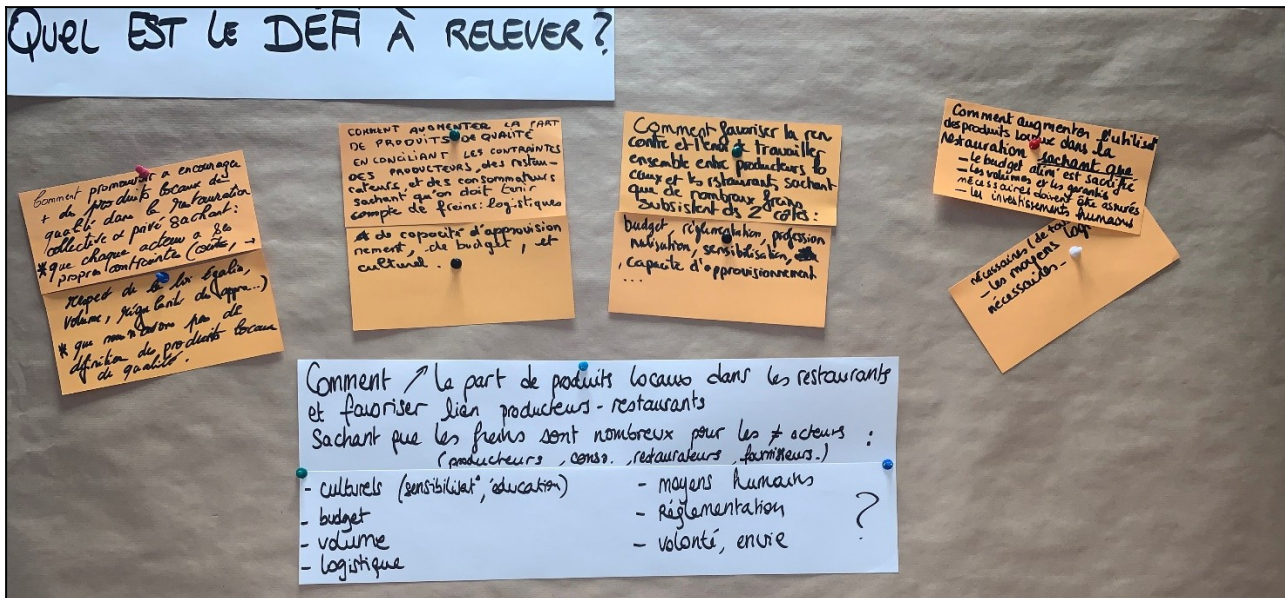 QUEL EST LE DÉFI À RELEVER?
Comment promouvoir a encourager
+ de produits locaux de
qualité dans la restauration
collective et privé sachant:
* que chaque acteur a ses
propres contraintes (coûts, →
respect de la loi Egalim,
volume, régularité de l'appro...)
* que nous n'avons pas de
définition des produits locaux
de qualité.
COMMENT AUGMENTER LA PART
DE PRODUITS DE QUALITÉ
EN CONCILIANT LES CONTRAINTES
DES PRODUCTEURS, des restau-
cateurs, et des consommateurs
sachant qu'on doit tenir
compte de freins: logistiques
de capacité d'approvision
nement, de budget, et
culturel.
Comment favoriser la ren
contre et l'envie travailler
ensemble entre producteurs lo
caux et les restaurants sachant
que de nombreux freins
subsistent des 2 côtés:
budget, réglementation, profession
nalisation, sensibilisation,
capacité d'approvisionnement
...
Comment augmenter l'utilisat
des produits locaux dans la
restauration sachant que
- le budget alim est sacrifié
- les volumes et les garanties
nécessaires doivent être assurés
- les investissements humains
nécessaires (de
- les moyens
nécessaires -
Comment ↗ la part de produits locaux dans les restaurants
et favoriser lien producteurs - restaurants
Sachant que les freins sont nombreux pour les ≠ acteurs :
(producteurs, conso., restaurateurs, fournisseurs.)
- culturels (sensibilisat°, éducation)
- budget
- volume
- logistique
- moyens humains
- Réglementation
- volonté, envie
?